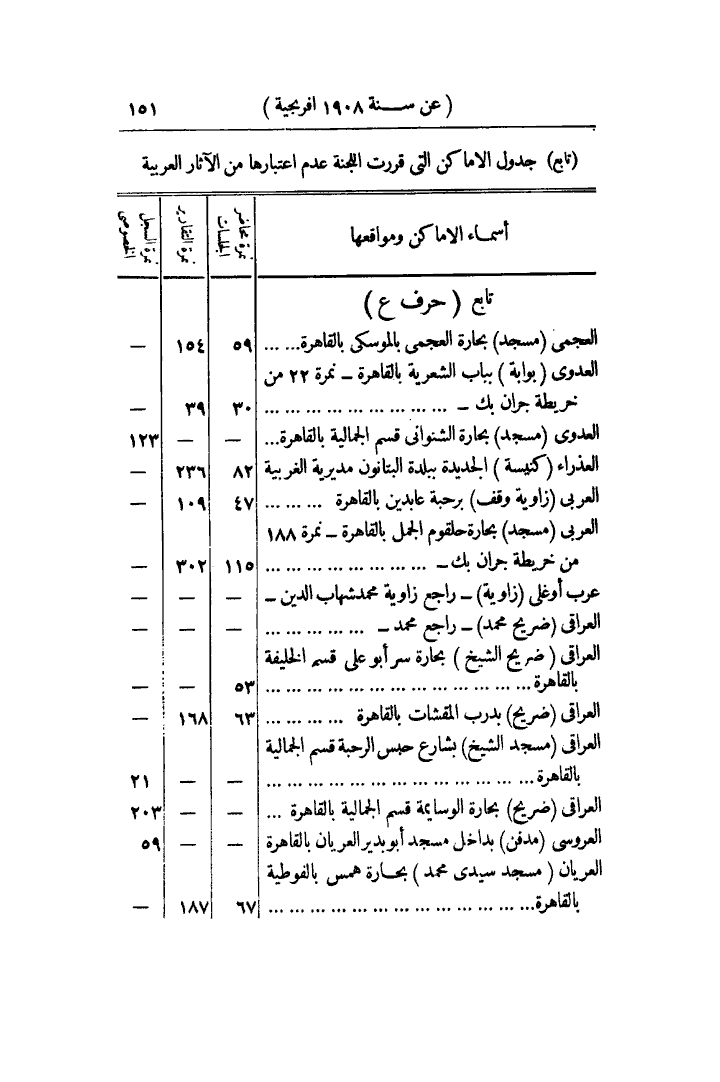 (عن سنة ١٩٠٨ افرنجية) ١٥١
(تابع) جدول الاماكن التى قررت اللجنة عدم اعتبارها من الآثار العربية
أسماء الاماكن ومواقعها | نمرة محاضر الجلسات | نمرة التقارير | نمرة السجل الخصوصى
تابع (حرف ع)
العجمى (مسجد) بحارة العجمى بالموسكى بالقاهرة... ... ٥٩ ١٥٤ —
العدوى (بوابة) بباب الشعرية بالقاهرة — نمرة ٢٢ من
خريطة جران بك — ... ... ... ... ... ... ... ... ... ٣٠ ٣٩ —
العدوى (مسجد) بحارة الشنوانى قسم الجمالية بالقاهرة... — — ١٢٣
العذراء (كنيسة) الجديدة ببلدة البتانون مديرية الغربية ٨٢ ٢٣٦ —
العربى (زاوية وقف) برحبة عابدين بالقاهرة ... ... ... ٤٧ ١٠٩ —
العربى (مسجد) بحارة حلقوم الجمل بالقاهرة — نمرة ١٨٨
من خريطة جران بك — ... ... ... ... ... ... ... ... ١١٥ ٣٠٢ —
عرب أوغلى (زاوية) — راجع زاوية محمد شهاب الدين — — — —
العراقى (ضريح محمد) — راجع محمد — ... ... ... ... ... — — —
العراقى (ضريح الشيخ) بحارة سر أبو على قسم الخليفة
بالقاهرة... ... ... ... ... ... ... ... ... ... ... ... ... ٥٣ — —
العراقى (ضريح) بدرب المقشات بالقاهرة ... ... ... ... ٦٣ ١٦٨ —
العراقى (مسجد الشيخ) بشارع حبس الرحبة قسم الجمالية
بالقاهرة... ... ... ... ... ... ... ... ... ... ... ... ... — — ٢١
العراقى (ضريح) بحارة الوسايمة قسم الجمالية بالقاهرة ... — — ٢٠٣
العروسى (مدفن) بداخل مسجد أبو بدير العريان بالقاهرة — — ٥٩
العريان (مسجد سيدى محمد) بحارة همس بالفوطية
بالقاهرة... ... ... ... ... ... ... ... ... ... ... ... ... ٦٧ ١٨٧ —